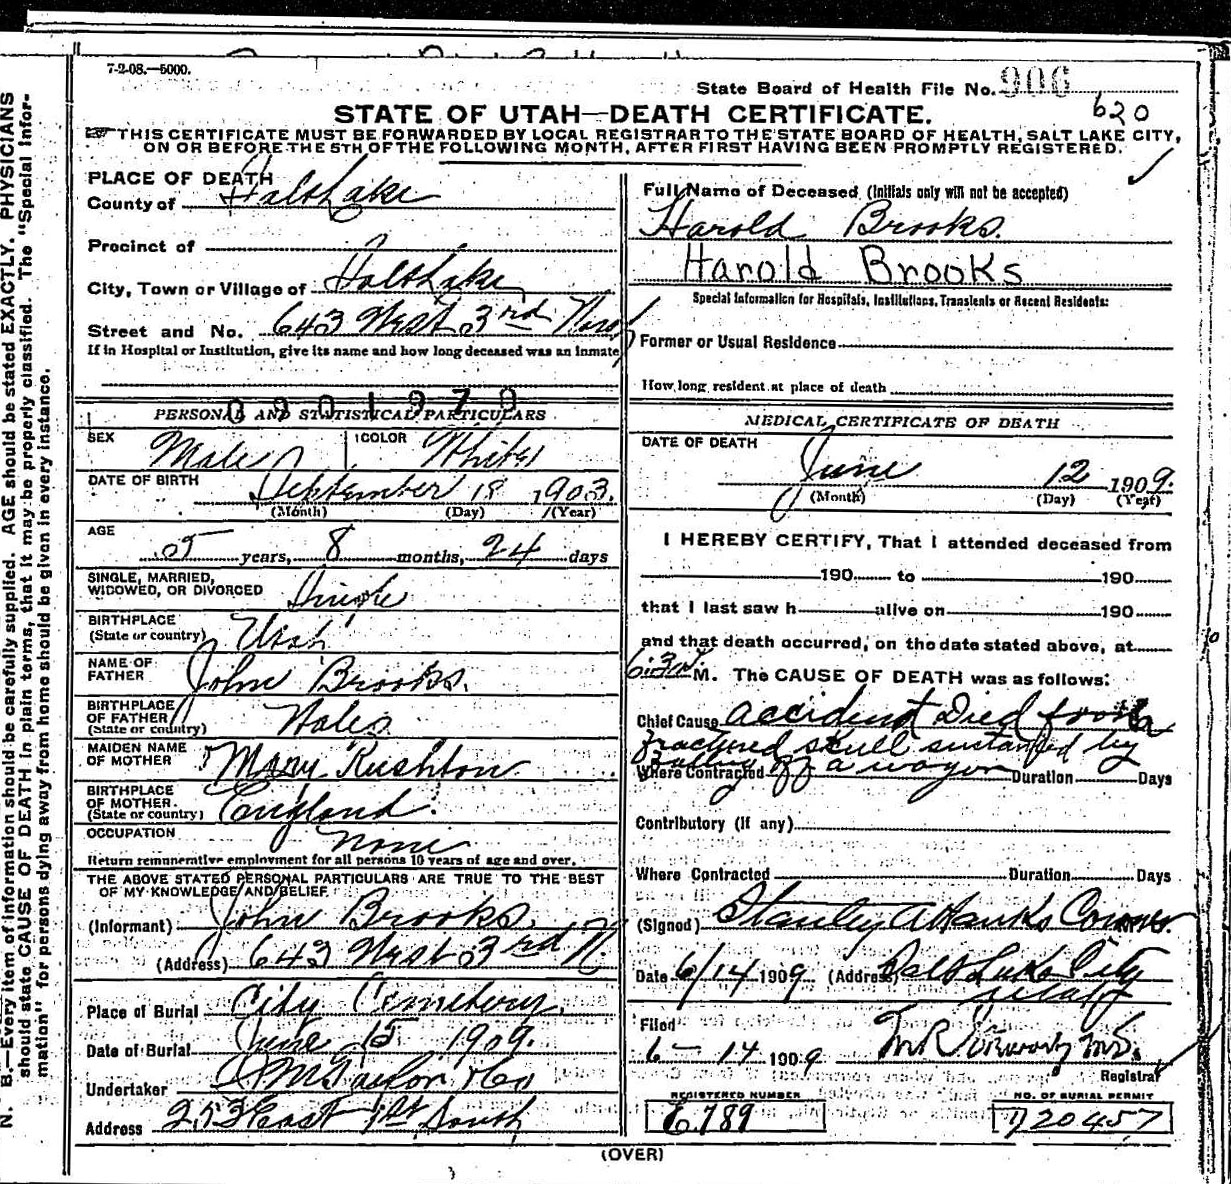 7-2-08.—5000.
State Board of Health File No. 906
620
STATE OF UTAH—DEATH CERTIFICATE.
THIS CERTIFICATE MUST BE FORWARDED BY LOCAL REGISTRAR TO THE STATE BOARD OF HEALTH, SALT LAKE CITY,
ON OR BEFORE THE 5TH OF THE FOLLOWING MONTH, AFTER FIRST HAVING BEEN PROMPTLY REGISTERED.
N. B.—Every item of information should be carefully supplied. AGE should be stated EXACTLY. PHYSICIANS
should state CAUSE OF DEATH in plain terms, that it may be properly classified. The "Special Infor-
mation" for persons dying away from home should be given in every instance.
PLACE OF DEATH
County of Salt Lake
Precinct of
City, Town or Village of Salt Lake
Street and No. 643 West 3rd North
If in Hospital or Institution, give its name and how long deceased was an inmate
0901970
PERSONAL AND STATISTICAL PARTICULARS
SEX Male COLOR White
DATE OF BIRTH September 18 1903.
(Month) (Day) (Year)
AGE 05 years, 8 months, 24 days
SINGLE, MARRIED,
WIDOWED, OR DIVORCED Single
BIRTHPLACE
(State or country) Utah
NAME OF
FATHER John Brooks.
BIRTHPLACE
OF FATHER
(State or country) Wales
MAIDEN NAME
OF MOTHER Mary Rushton
BIRTHPLACE
OF MOTHER.
(State or country) England.
OCCUPATION None
Return remunerative employment for all persons 10 years of age and over.
THE ABOVE STATED PERSONAL PARTICULARS ARE TRUE TO THE BEST
OF MY KNOWLEDGE AND BELIEF.
(Informant) John Brooks.
(Address) 643 West 3rd N.
Place of Burial City Cemetery.
Date of Burial June 15 1909.
Undertaker Taylor & Co
Address 253 East 1st South
Full Name of Deceased (Initials only will not be accepted)
Harold Brooks.
Harold Brooks
Special Information for Hospitals, Institutions, Transients or Recent Residents:
Former or Usual Residence
How long resident at place of death
MEDICAL CERTIFICATE OF DEATH
DATE OF DEATH
June 12 1909.
(Month) (Day) (Year)
I HEREBY CERTIFY, That I attended deceased from
190 to 190
that I last saw h alive on 190
and that death occurred, on the date stated above, at
6:30 M. The CAUSE OF DEATH was as follows:
Chief Cause accident Died from a
fractured skull sustained by
falling off a wagon
Where Contracted Duration Days
Contributory (if any)
Where Contracted Duration Days
(Signed) Stanley A Hanks Coroner.
Date 6/14 1909 (Address) Salt Lake City
Utah
Filed
6-14 1909
Registrar
REGISTERED NUMBER
6789
NO. OF BURIAL PERMIT
20457
(OVER)